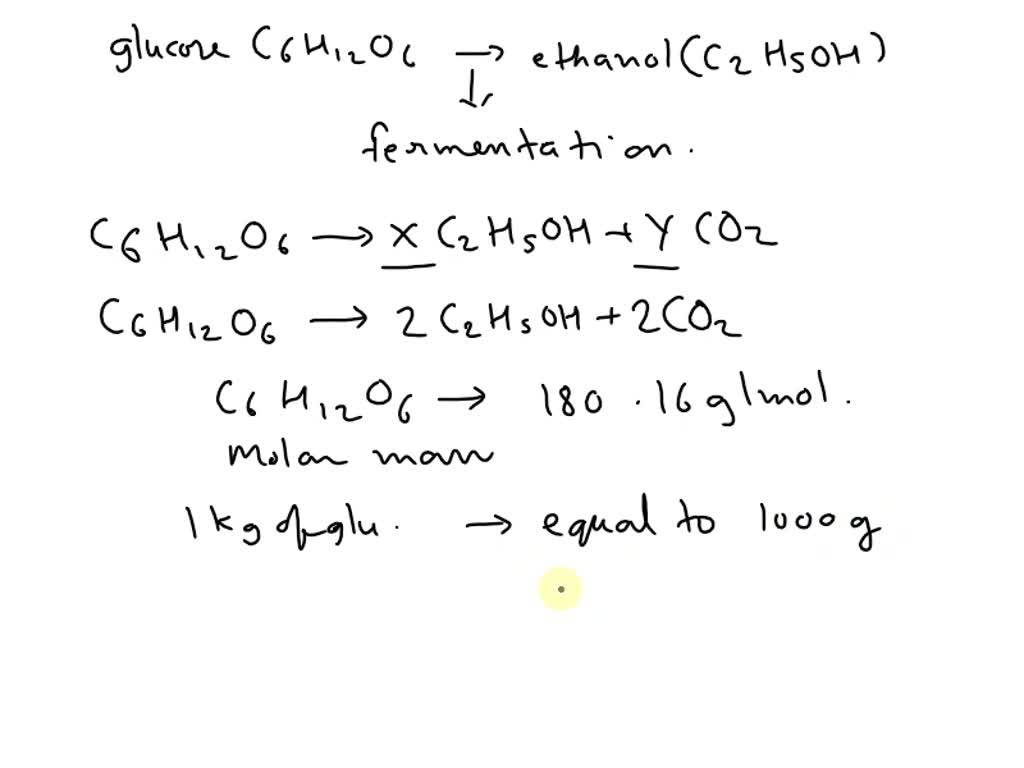 glucose C₆H₁₂O₆ → ethanol (C₂H₅OH)
↓
fermentation.
C₆H₁₂O₆ → X C₂H₅OH + Y CO₂
C₆H₁₂O₆ → 2 C₂H₅OH + 2CO₂
C₆H₁₂O₆ → 180.16 g/mol.
Molar mass
1 kg of glu. → equal to 1000 g